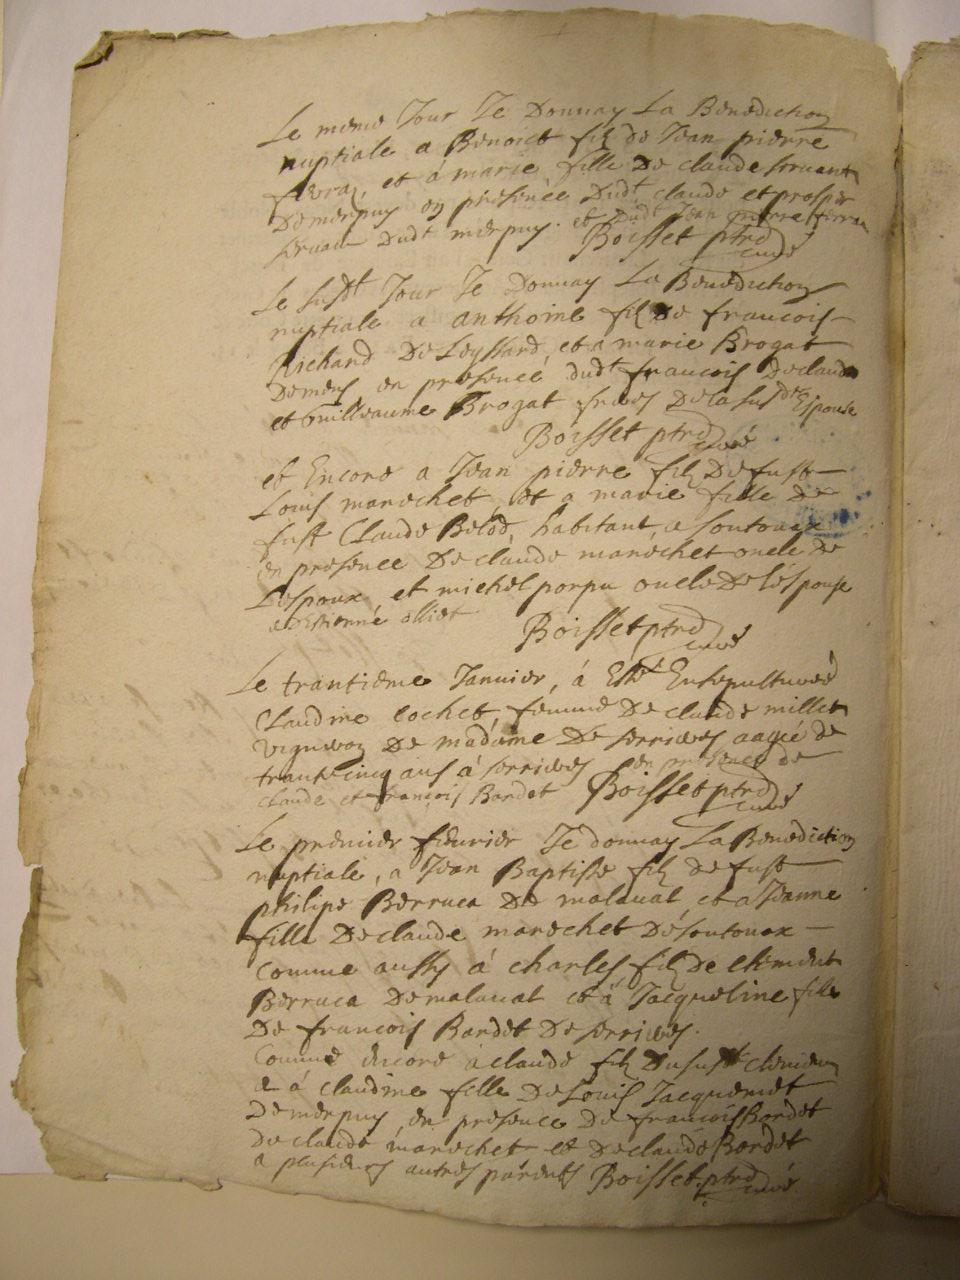 Le meme Jour Je Donnay La Benediction
nuptiale a Benoict filz de Jean pierre
ferraz, et á marie fille De claude seruant
Demerpuy en présence Dudt claude et prosper
seruan Dudt merpuy. et Dudt Jean pierre ferraz
Boisset ptre curé
Le susdt Jour Je Donnay La Benediction
nuptiale a anthoine filz de francois
Richard De Leyssard, et a marie Brogat
Demens en presence dudt francois De claude
et Guilleaume Brogat freres De la susdte Epouse
Boisset ptre curé
et Encore a Jean pierre filz De fust
Louis marechet, et a marie fille de
fust Claude Belod, habitant a soutonax
en presence De claude maréchet oncle de
L'espoux et michel porpu oncle De l'éspouse
et Estienné olliet
Boisset ptre curé
Le trantiéme Januier, á Esté Ensepulturée
Claudine cochet, femme De claude millet
vigneron De madame De serrieres aagée de
trante cinq ans á serrieres en présence de
claude et françois Bardet Boisset ptre curé
Le premier féurier Je donnay La Benediction
nuptiale, a Jean Baptiste filz de fust
philipe Berruca De malaual et á Jeanne
fille De claude marechet Dé soutonax
Comme aussy á charles filz de clement
Berruca Demalaual et á Jacqueline fille
De francois Bardet De serrieres.
Comme encore á claude filz du susdt clement
et á claudine fille De Louis Jacquemet
Demerpuy, en presence De francois Bardet
De claude maréchet et De claude Bardet
a plusieurs autres párents Boisset ptre curé